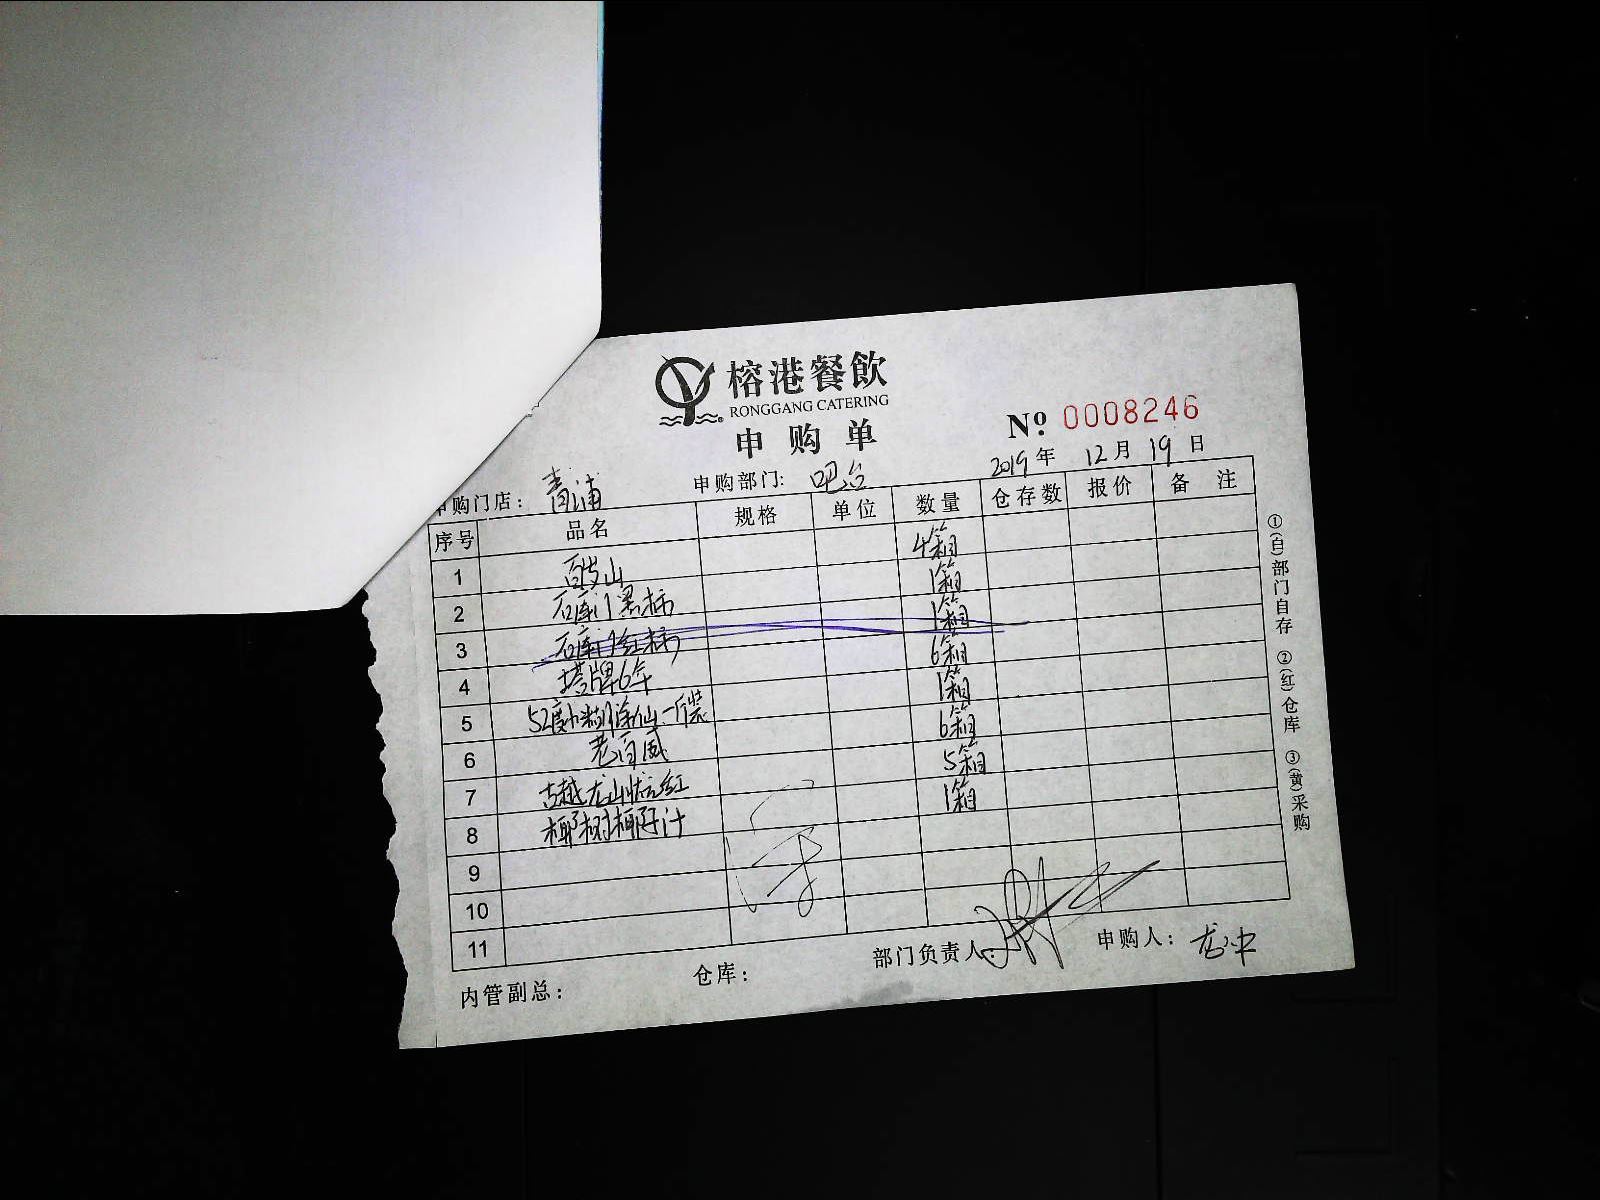 榕港餐飲
RONGGANG CATERING
申购单
№ 0008246
申购门店：青浦 申购部门：吧台 2019年 12月 19日
序号 品名 规格 单位 数量 仓存数 报价 备注
1 百岁山 4箱
2 石库门黑标 1箱
3 石库门红标 1箱
4 塔牌6年 6箱
5 52度 一斤装 1箱
6 老百威 6箱
7 古越龙山 红 5箱
8 椰树椰子汁 1箱
9
10
11
内管副总： 仓库： 部门负责人： 申购人：
①(白)部门自存 ②(红)仓库 ③(黄)采购